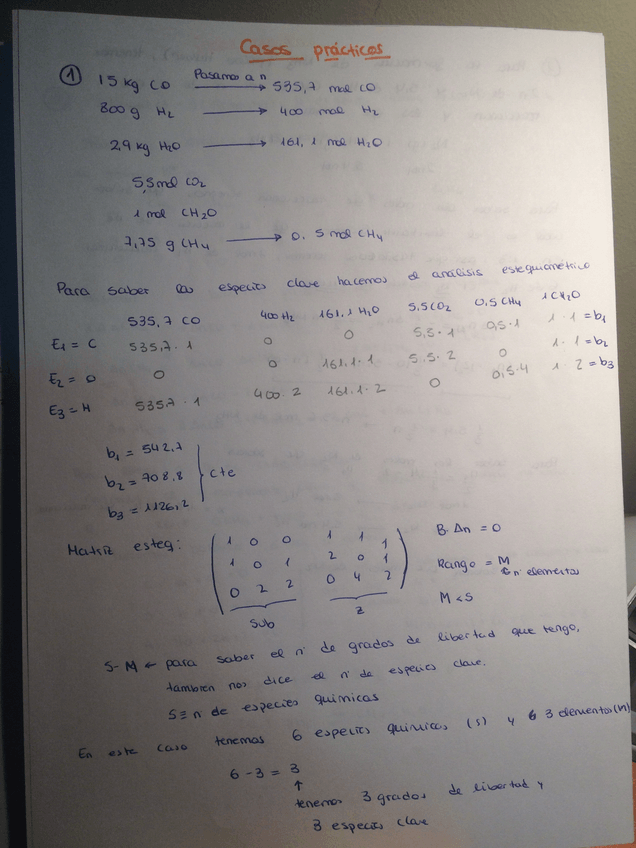 Casos prácticos
① 15 kg CO Pasamos a n → 535,7 mol CO
800 g H₂ → 400 mol H₂
2,9 kg H₂O → 161,1 mol H₂O
5,5 mol CO₂
1 mol CH₂O
7,75 g CH₄ → 0.5 mol CH₄
Para saber las especies clave hacemos el análisis estequiométrico
535,7 CO 400 H₂ 161,1 H₂O 5,5 CO₂ 0,5 CH₄ 1 CH₂O
E₁ = C 535,7·1 0 0 5,5·1 0,5·1 1·1 = b₁
E₂ = O 0 0 161,1·1 5,5·2 0 1·1 = b₂
E₃ = H 535,7·1 400·2 161,1·2 0 0,5·4 1·2 = b₃
b₁ = 542,7
b₂ = 708,8 } Cte
b₃ = 1126,2
Matriz esteq: ( 1 0 0 1 1 1 B·Δn = 0
1 0 1 2 0 1 Rango = M
0 2 2 0 4 2 ) nº elementos
Sub z M < S
S-M ← para saber el nº de grados de libertad que tengo,
también nos dice el nº de especies clave.
S ≡ nº de especies químicas
En este caso tenemos 6 especies químicas (s) y 3 elementos (m)
6 - 3 = 3
↑
tenemos 3 grados de libertad y
3 especies clave